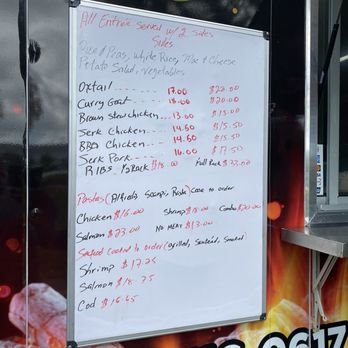 All Entrée served w/ 2 sides
Sides
Rice & Peas, White Rice, Mac & Cheese
Potato Salad, Vegetables
Oxtail ---- 17.00 $22.00
Curry Goat ---- 18.00 $20.00
Brown Stew chicken -- 13.00 $15.00
Jerk Chicken ---- 14.50 $15.50
BBQ Chicken ---- 14.50 $15.50
Jerk Pork ---- 16.00 $17.50
RIBS. ½ Rack $18.00 Full Rack
Pastas (Alfredo Scampi, Rasta) Come to order
Chicken $16.00 Shrimp $18.00 Combo $20.00
Salmon $23.00 NO MEAT $13.00
Seafood Cooked to order (grilled, Sauteed, Smoked)
Shrimp $17.25
Salmon $18.75
Cod $16.45